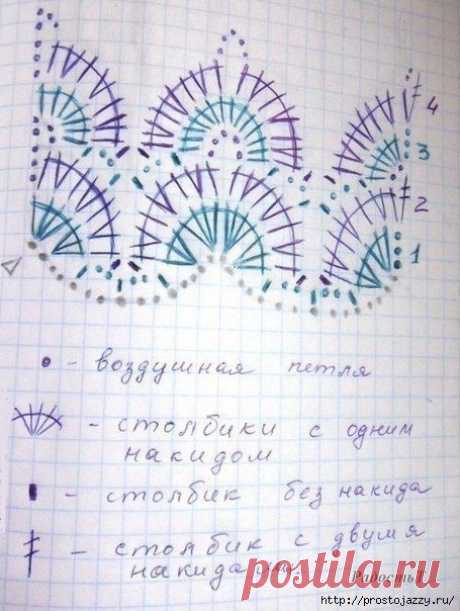 4
3
2
1
- воздушная петля
- столбики с одним
накидом
- столбик без накида
- столбик с двумя
накида
Радость
postila.ru
http://prostojazzy.ru/